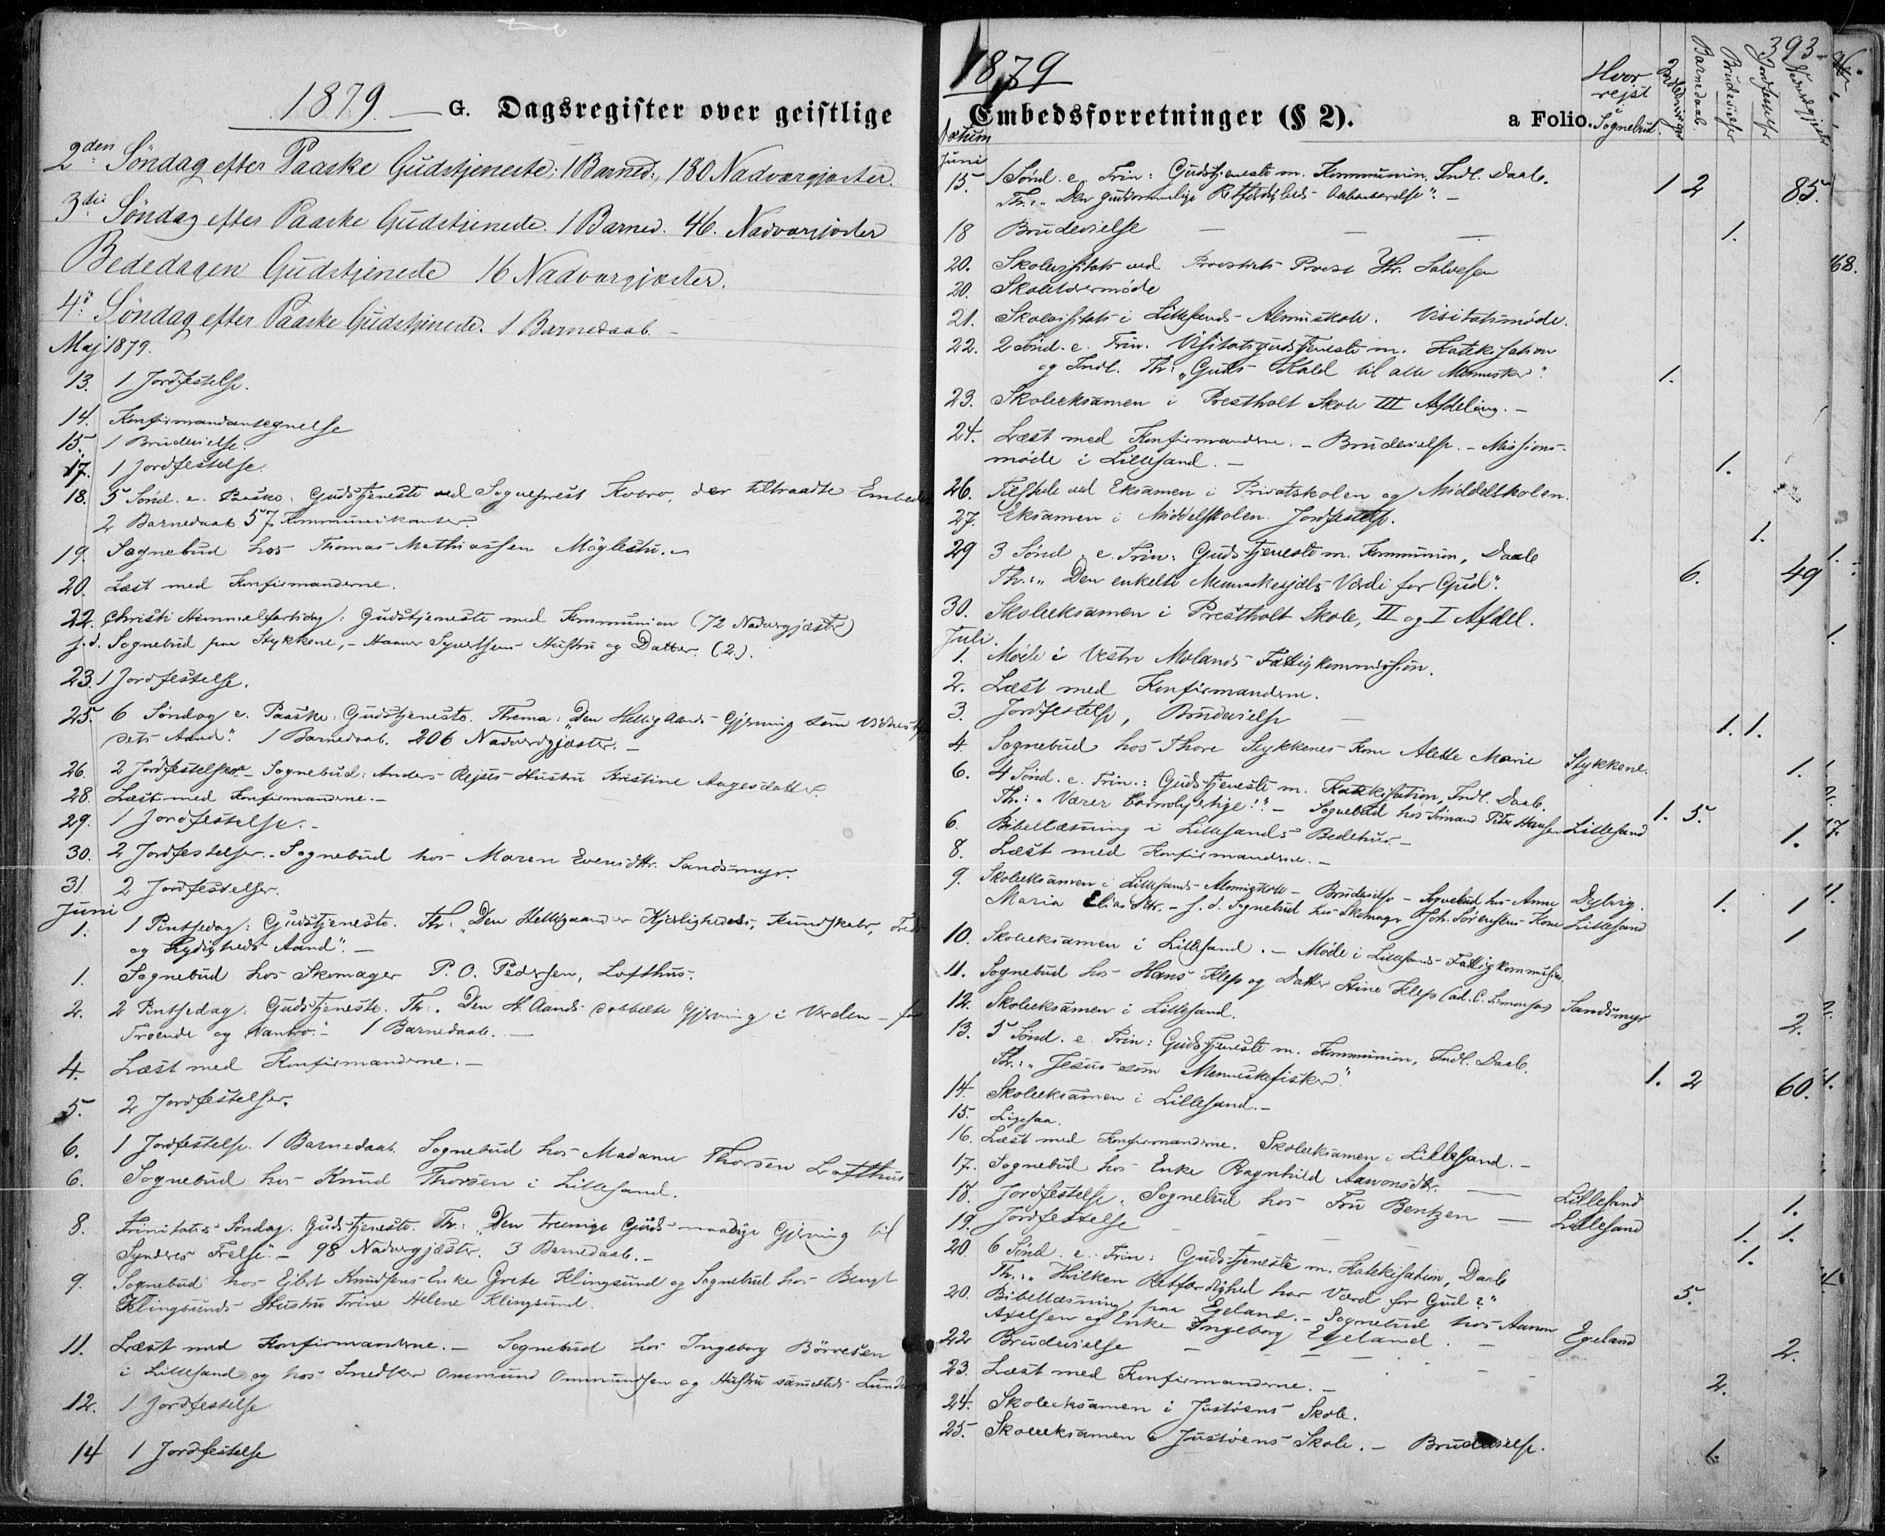 1879 G. Dagsregister over geistlige
2den Søndag efter Paaske Gudstjeneste; 1 Barned., 180 Nadvergjæster.
3die Søndag efter Paaske Gudstjeneste. 1 Barned. 46. Nadvergjæster
Bededagen Gudstjeneste 16 Nadvergjæster.
4de Søndag efter Paaske Gudstjeneste. 1 Barnedaab. –
Maj 1879.
13. 1 Jordfestelse.
14. Konfirmandantegnelse
15. 1 Brudevielse.
17. 1 Jordfestelse.
18. 5 Sønd. e. Paaske. Gudstjeneste ved Sogneprest Kobro, der tiltraadte Embedet
2 Barnedaab 57 Kommunikanter.
19. Sognebud hos Thomas Mathiassen Møglestu. –
20. Læst med Konfirmanderne.
22. Christi Himmelfartsdag: Gudstjeneste med Kommunion (72 Nadvergjæster)
s. d. Sognebud paa Stykkene, – Syvertsens Hustru og Datter. (2).
23. 1 Jordfestelse.
25. 6 Søndag e. Paaske: Gudstjeneste. Thema: "Den Hellig Aands Gjerning som
dets Aand". 1 Barnedaab. 206 Nadvergjæster. –
26. 2 Jordfestelser. – Sognebud: Anders Rejses Hustru Kristine Aagesdatter.
28. Læst med Konfirmanderne. –
29. 1 Jordfestelse. –
30. 2 Jordfestelser. – Sognebud hos Maren Evensdtr. Sandsmyr.
31. 2 Jordfestelser.
Juni
1. 1 Pintsedag: Gudstjeneste. Th: "Den Helligaand er Kjærligheds, Kundskabs, Freds
og Lydigheds Aand". –
1. Sognebud hos Skomager P. O. Pedersen, Lofthus.
2. 2 Pintsedag: Gudstjeneste. Th: "Den H. Aands dobbelte Gjerning i Verden – for
Troende og Vantro". – 1 Barnedaab. –
4. Læst med Konfirmanderne. –
5. 2 Jordfestelser.
6. 1 Jordfestelse. 1 Barnedaab. Sognebud hos Madame Thorsen Lofthus
6. Sognebud hos Knud Thorsen i Lillesand.
8. Trinitatis Søndag. Gudstjeneste. Th: "Den treenige Guds naadige Gjerning til
Synderes Frelse". – 98 Nadvergjæster. 3 Barnedaab. –
9. Sognebud hos Ejlert Knudsens Enke Grete Klingsund og Sognebud hos Bengt
Klingsunds Hustru Trine Helene Klingsund.
11. Læst med Konfirmanderne. – Sognebud hos Ingeborg Børresen
i Lillesand og hos Ommund Ommundsen og Hustru sammesteds
12. 1 Jordfestelse
14 1 Jordfestelse
1879 Embedsforretninger (§ 2). a Folio. 393
Datum Hvor rejst i Sognebud Barnedaab Brudevielse Jordfestelse Nadvergjæster
Juni
15. 1 Sønd. e. Trin: Gudstjeneste m. Kommunion, Indl. Daab.
Th: "Den gudommelige Retfærdigheds Aabenbarelse". – 1 2 85.
18 Brudevielse – – – 1.
20. Skolevisitats ved Provstiets Provst Hr. Salvesen
20. Skolelærermøde
21. Skolevisitats i Lillesands Almueskole. Visitatsmøde.
22. 2 Sønd. e. Trin. Visitatsgudstjeneste m. Katekisation
og Indl. Th: "Guds Kald til alle Mennesker". 1.
23. Skoleeksamen i Prestholt Skole III Afdeling. –
24. Læst med Konfirmanderne. – Brudevielse. – Missions-
møde i Lillesand. – 1.
26. Tilstede ved Eksamen i Privatskolen og Middelskolen.
27. Eksamen i Middelskolen. Jordfestelse. 1.
29 3 Sønd. e. Trin: Gudstjeneste m. Kommunion, Daab
Th: "Den enkelte Menneskesjæls Værdi for Gud". 6. 49
30. Skoleeksamen i Prestholt Skole, II og I Afdel.
Juli.
1. Møde i Vestre Molands Fattigkommission.
2. Læst med Konfirmanderne.
3. Jordfestelse, Brudevielse – 1. 1.
4. Sognebud hos Thore Stykkenes Kone Alette Marie Stykkene. 1.
6. 4 Sønd. e. Trin.: Gudstjeneste m. Katekisation, Indl. Daab.
Th: "Værer barmhjertige!" – Sognebud hos Sømand Peter Hansen Lillesand 1. 5. 1.
6. Bibellæsning i Lillesands Bedehus. –
8. Læst med Konfirmanderne. –
9. Skoleeksamen i Lillesands Almueskole – Brudevielse – Sognebud hos Anne Dybvig. 1. 1
Maria Eliasdtr. – s. d. Sognebud hos Skomager Joh. Sørensens Kone Lillesand 1
10. Skoleeksamen i Lillesand. – Møde i Lillesands Fattigkommission
11. Sognebud hos Hans Klep og Datter Stine Klep (ad. C. Simonsen) Sandsmyr 2.
12. Skoleeksamen i Lillesand.
13. 5 Sønd. e. Trin: Gudstjeneste m. Kommunion, Indl. Daab.
Th: "Jesus som Menneskefisker". 1. 2 60.
14. Skoleeksamen i Lillesand. –
15. Ligesaa.
16. Læst med Konfirmanderne. Skoleeksamen i Lillesand. –
17. Sognebud hos Enke Ragnhild Aanonsdtr. – Lillesand 1.
18. Jordfestelse. Sognebud hos Fru Bentzen – Lillesand 1. 1.
19. Jordfestelse – – 1.
20 6 Sønd. e. Trin: Gudstjeneste m. Katekisation, Daab
Th: "Hvilken Retfærdighed har Værd for Gud?" 5.
20. Bibellæsning paa Egeland. – Sognebud hos Aanon Egeland 2.
Axelsen og Enke Ingeborg Egeland. –
22 Brudevielse – – – 2.
23. Læst med Konfirmanderne. –
24. Skoleeksamen i Justøens Skole.
25. Skoleeksamen i Justøens Skole. – Brudevielse. 1.